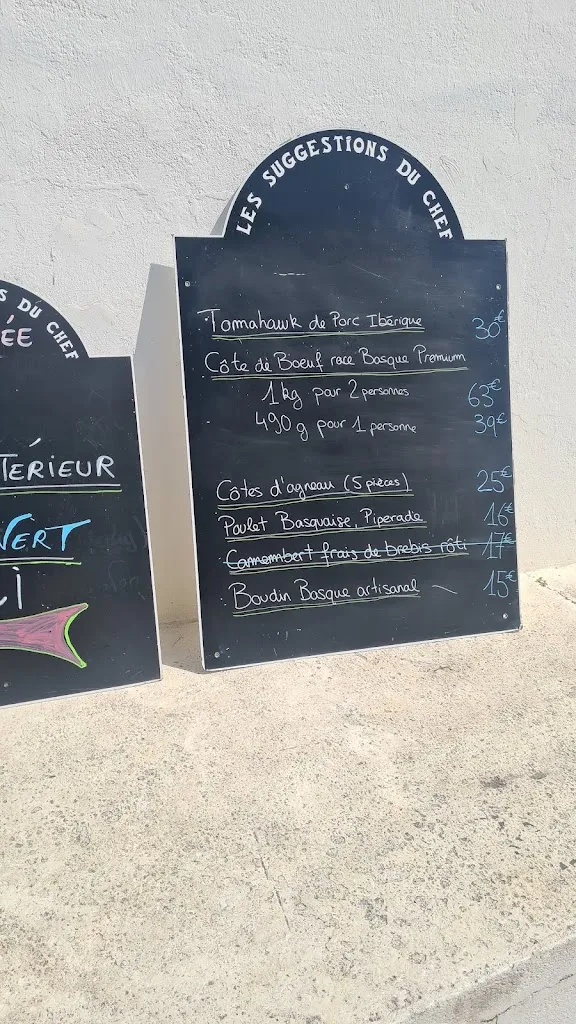 LES SUGGESTIONS DU CHEF
Tomahawk de Porc Ibérique 30€
Côte de Boeuf race Basque Premium
1kg pour 2 personnes 63€
490 g pour 1 personne 39€
Côtes d'agneau (5 pièces) 25€
Poulet Basquaise, Piperade 16€
Camembert frais de brebis rôti 17€
Boudin Basque artisanal 15€
S DU CHEF
ÉE
TERIEUR
VERT